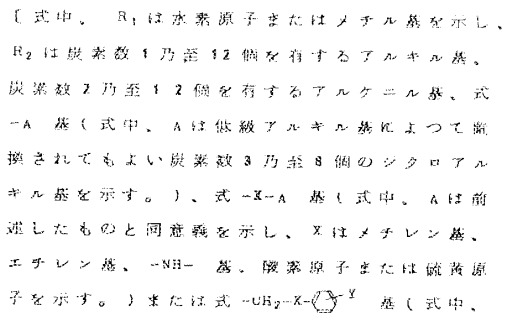 〔式中、R₁は水素原子またはメチル基を示し、
R₂は炭素数1乃至12個を有するアルキル基、
炭素数2乃至12個を有するアルケニル基、式
-A 基(式中、Aは低級アルキル基によつて置
換されてもよい炭素数3乃至8個のシクロアル
キル基を示す。)、式-X-A 基(式中、Aは前
述したものと同意義を示し、Xはメチレン基、
エチレン基、-NH- 基、酸素原子または硫黄原
子を示す。)または式-CH₂-X- -Y 基(式中、